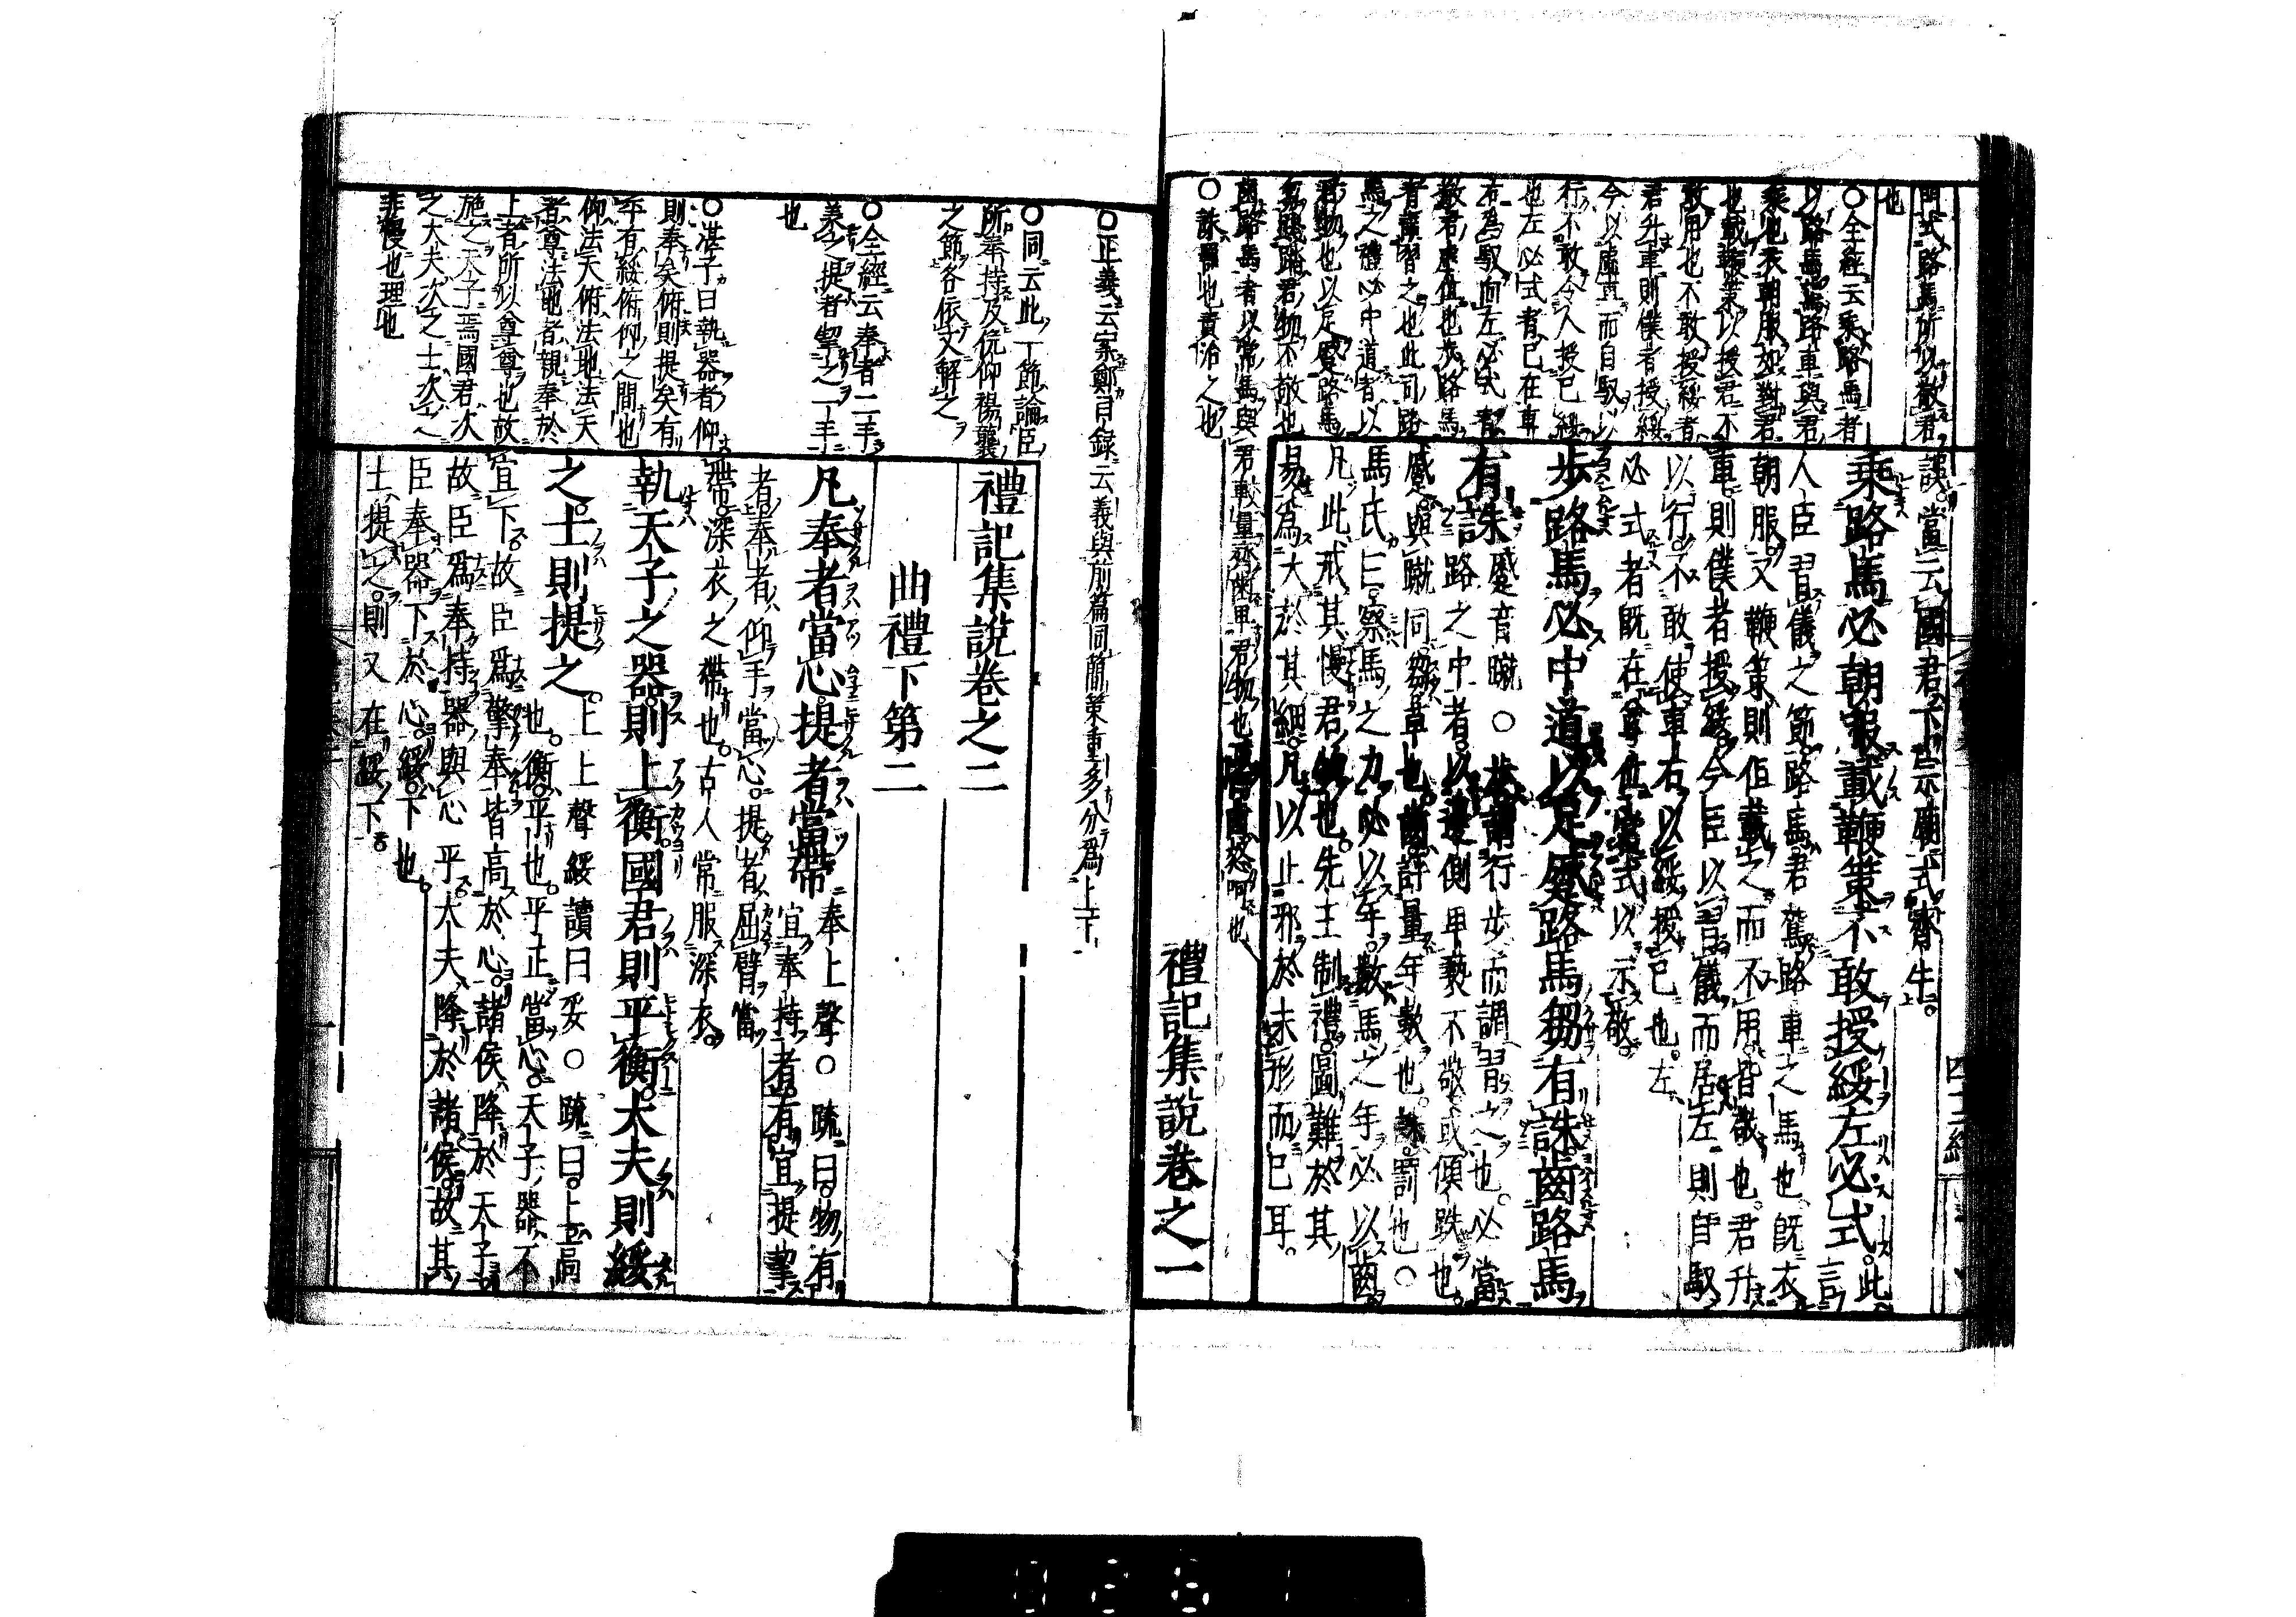 門式路馬所以敬君
也
○全經云乘路馬者
以路馬駕路車與君
乘也衣朝服如對君
也載鞭策以授君不
敢用也不敢授綏者
君升車則僕者授綏
今以虛車而自馭以
行不敢令人授已綏
也左必式者已在車
右為馭而左必式者
敬君虛位也步路馬
者調習之也此司路
馬之禮必中道者以
君物也以足蹙路馬
芻踐踏君物不敬也
齒路馬者以常馬與君較量齊齒卑君物也
○誅罪也責治之也
誤當云國君下宗廟式齊牛
乘路馬必朝服載鞭策不敢授綏左必式此言
人臣習儀之節路馬君駕路車之馬也旣衣
朝服又鞭策則但載之而不用皆敬也君升
車則僕者授綏今臣以習儀而居左則自馭
以行不敢使車右以綏授已也左
必式者旣在尊位當式以示敬
步路馬必中道以足蹙路馬芻有誅齒路馬
有誅蹙音蹴○步謂行步而調習之也必當
路之中者以邊側卑褻不敬或傾跌也
蹙與蹴同芻草也齒評量年數也誅罰也○
馬氏曰察馬之力必以年數馬之年必以齒
凡此戒其慢君物也先王制禮圖難於其
易為大於其細凡以止邪於未形而已耳
禮記集說卷之一
○正義云案鄭目録云義與前篇同簡策重多分為上下
○同云此一節論臣
所奉持及俛仰裼襲
之節各依文解之
○全經云奉者二手
養之提者挈之一手
也
○湛子曰執器者仰
則奉矣俯則提矣有
平有綏俯仰之間也
仰法天俯法地法天
者尊法地者親奉於
上者所以尊尊也故
施之天子焉國君次
之大夫次之士次之
非慢也理也
禮記集說卷之二
曲禮下第二
凡奉者當心提者當帶奉上聲○疏曰物有
宜奉持者有宜提挈
者奉者仰手當心提者屈臂當
帶深衣之帶也古人常服深衣
執天子之器則上衡國君則平衡大夫則綏
之士則提之上上聲綏讀曰妥○疏曰上高
也衡平也平正當心天子器不
宜下故臣爲擎奉皆高於心諸侯降於天子
故臣爲奉持器與心平大夫降於諸侯故其
臣奉器下於心綏下也
士提之則又在綏下